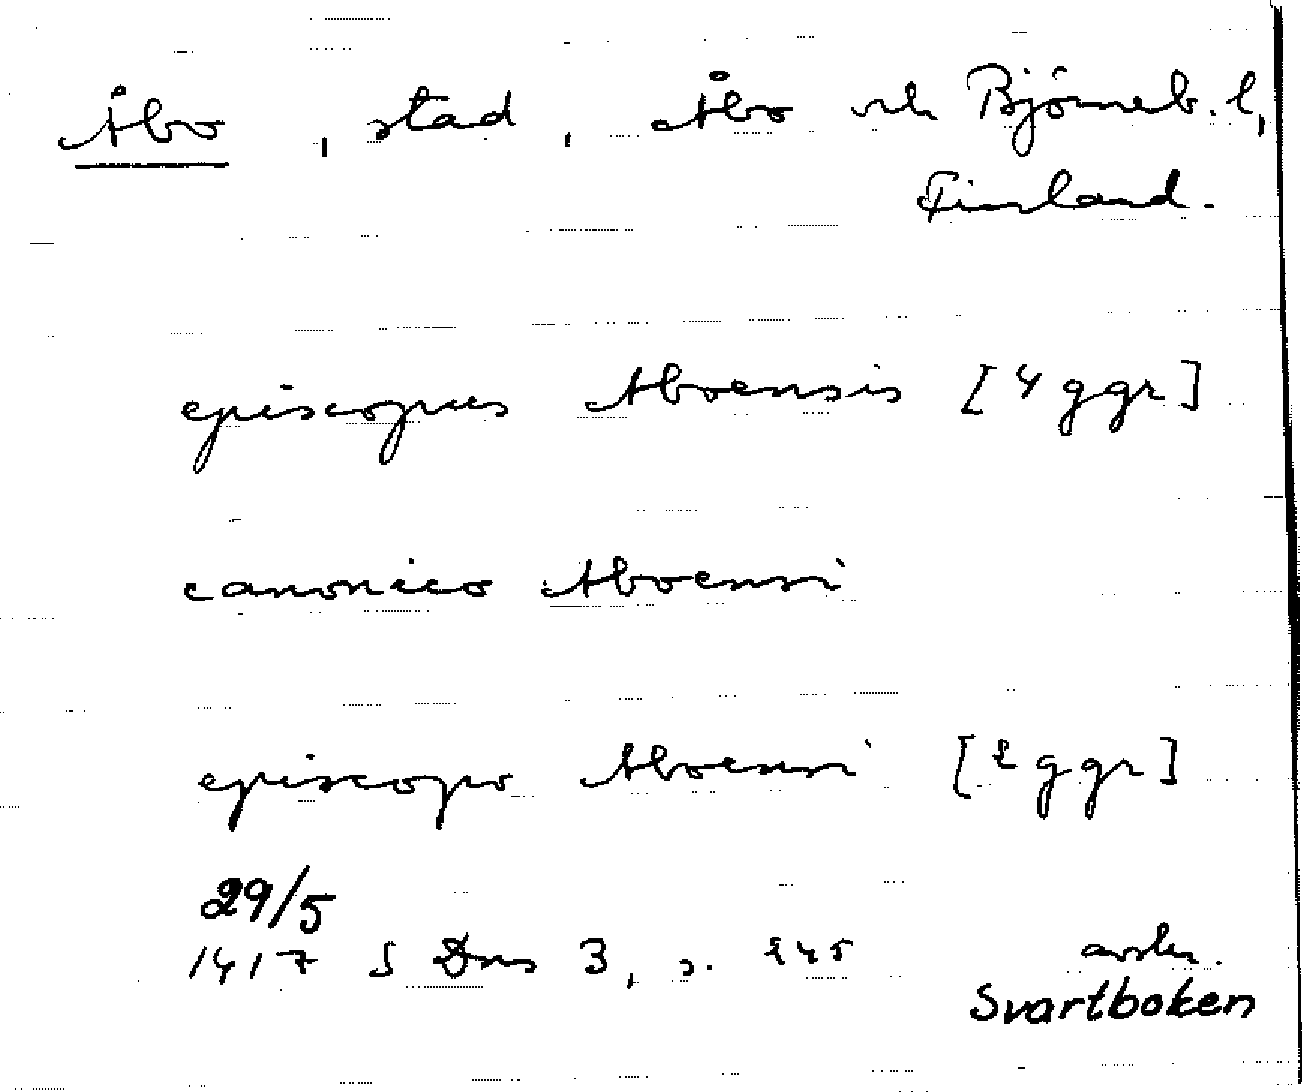 Åbo, stad, Åbo och Björneb. l,
Finland.
episcopus Aboensis [4 ggr]
canonico Aboensi
episcopo Aboensi [2 ggr]
29/5
1417 S Dns 3, s. 245 avskr.
Svartboken